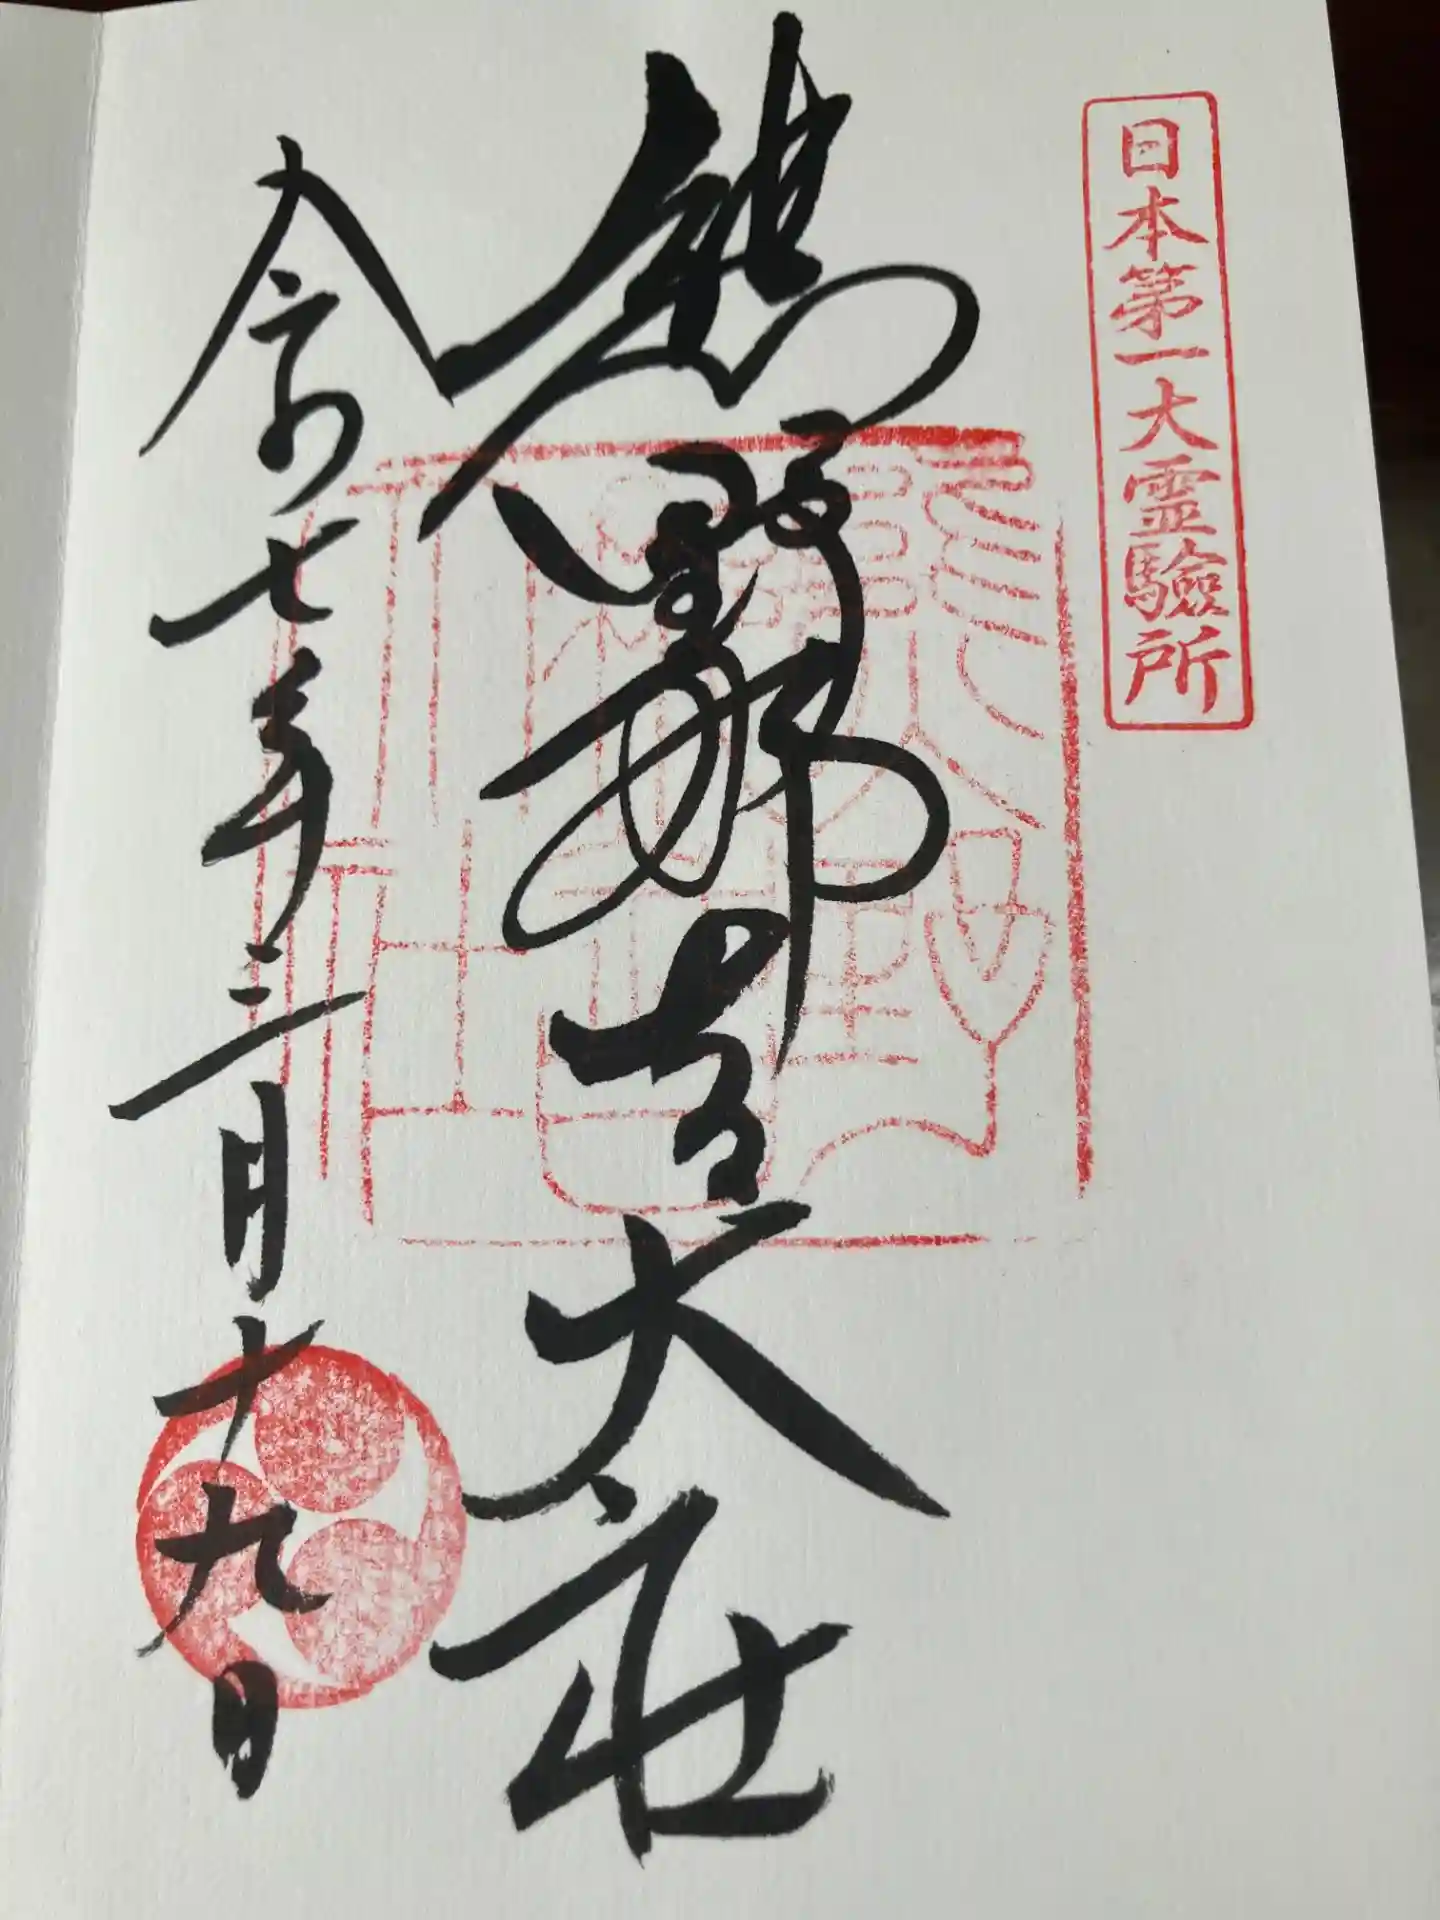 日本第一大霊験所
熊野那智大社
令和七年三月十九日